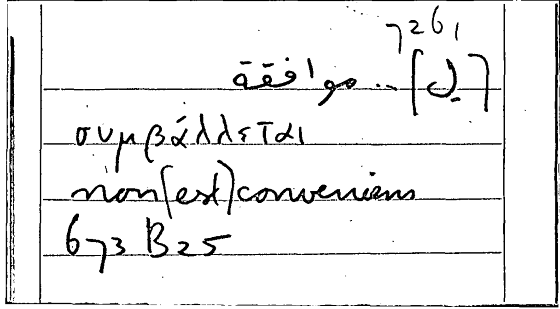 7261
.. موافقة
συμβάλλεται
non(est)conveniens
673 B25